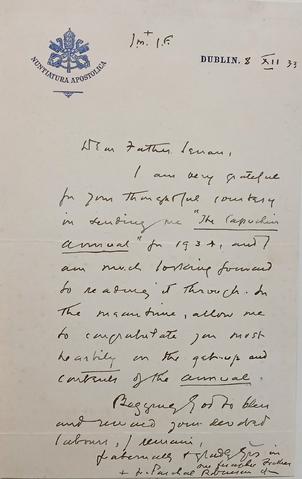 J.M.+ J.F.
NUNTIATURA APOSTOLICA
DUBLIN. 8 XII 33
Dear Father Senan,
I am very grateful
for your thoughtful courtesy
in sending me "The Capuchin
Annual" for 1934, and I
am much looking forward
to reading it through. In
the meantime, allow me
to congratulate you most
heartily on the get-up and
contents of the Annual.
Begging God to bless
and reward your devoted
labours, I remain,
fraternally & gratefully yrs in
our Seraphic Father
+ Paschal Robinson